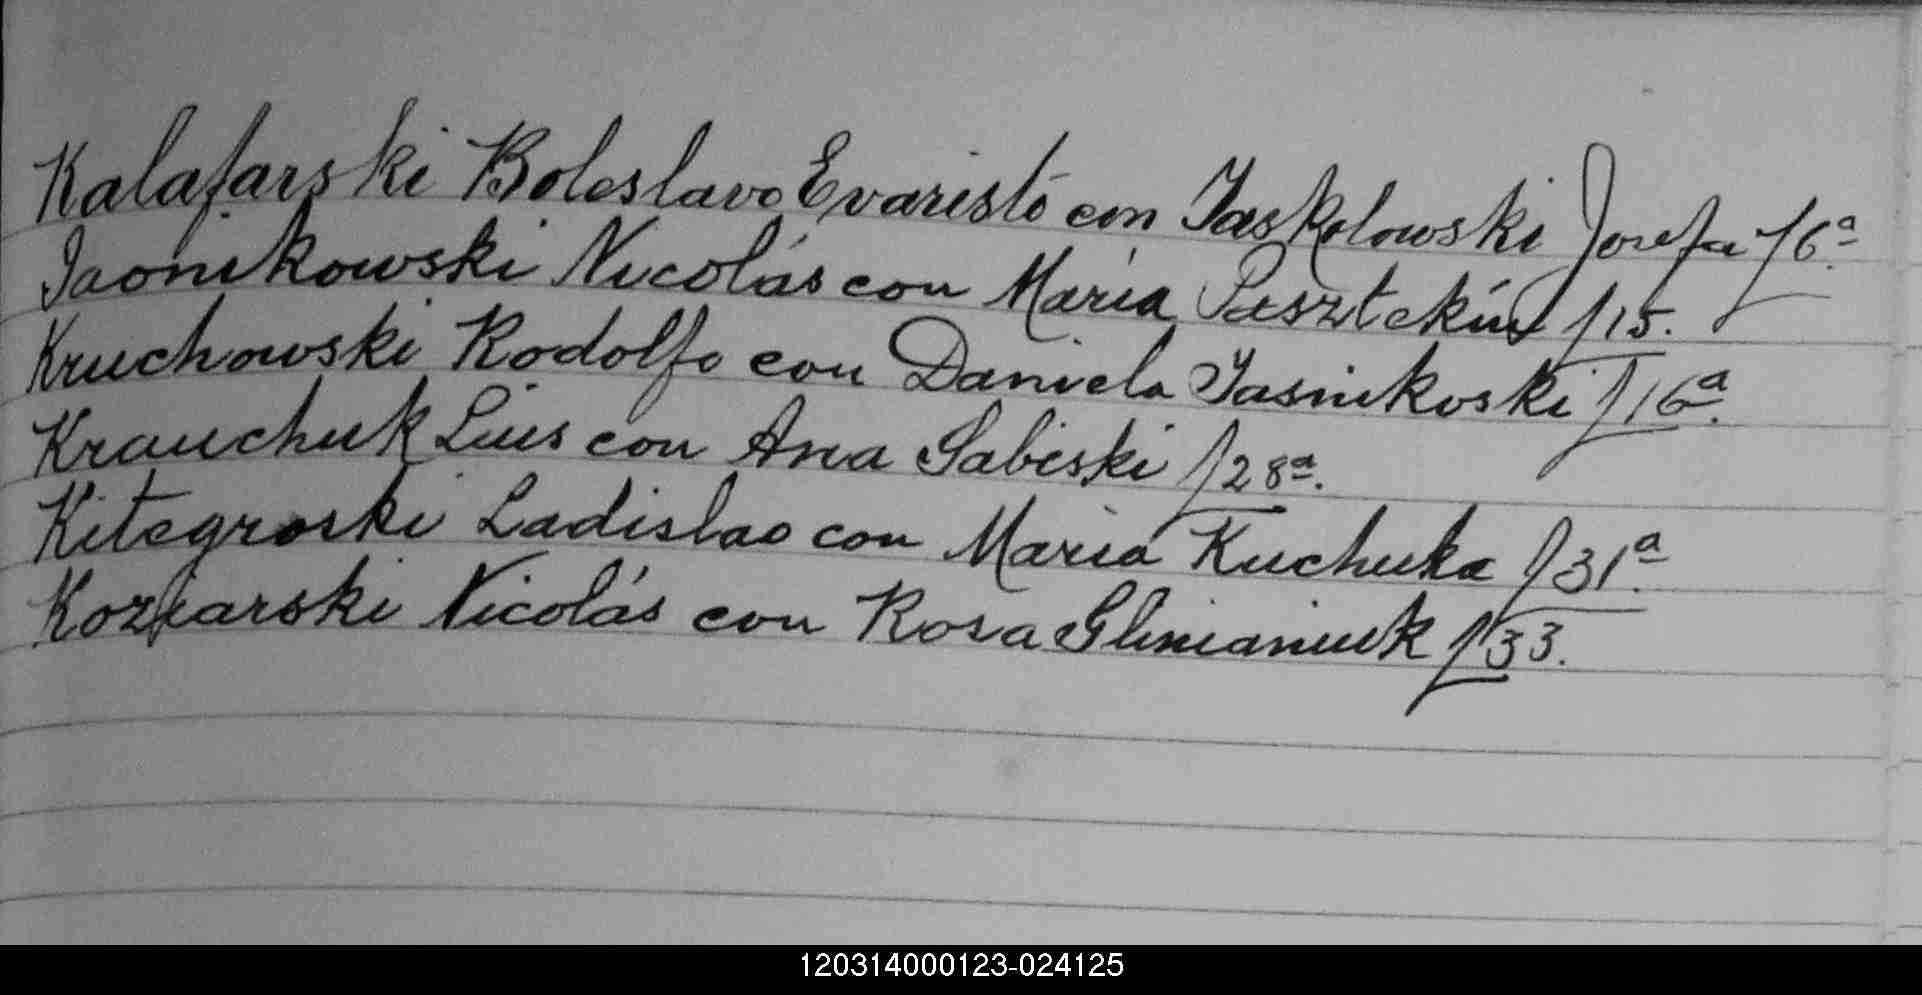 Kalafarski Boleslavo Evaristo con Jaskolowski Josefa f 6ª.
Jaonikowski Nicolás con María f 15.
Kruchowski Rodolfo con Daniela Jasnikoski f 16ª.
Krauchuk Luis con Ana Sabiski f 28ª.
Kitegroski Ladislao con María Kuchuka f 31ª.
Koziarski Nicolás con Rosa Glinianiuk f 33.
120314000123-024125